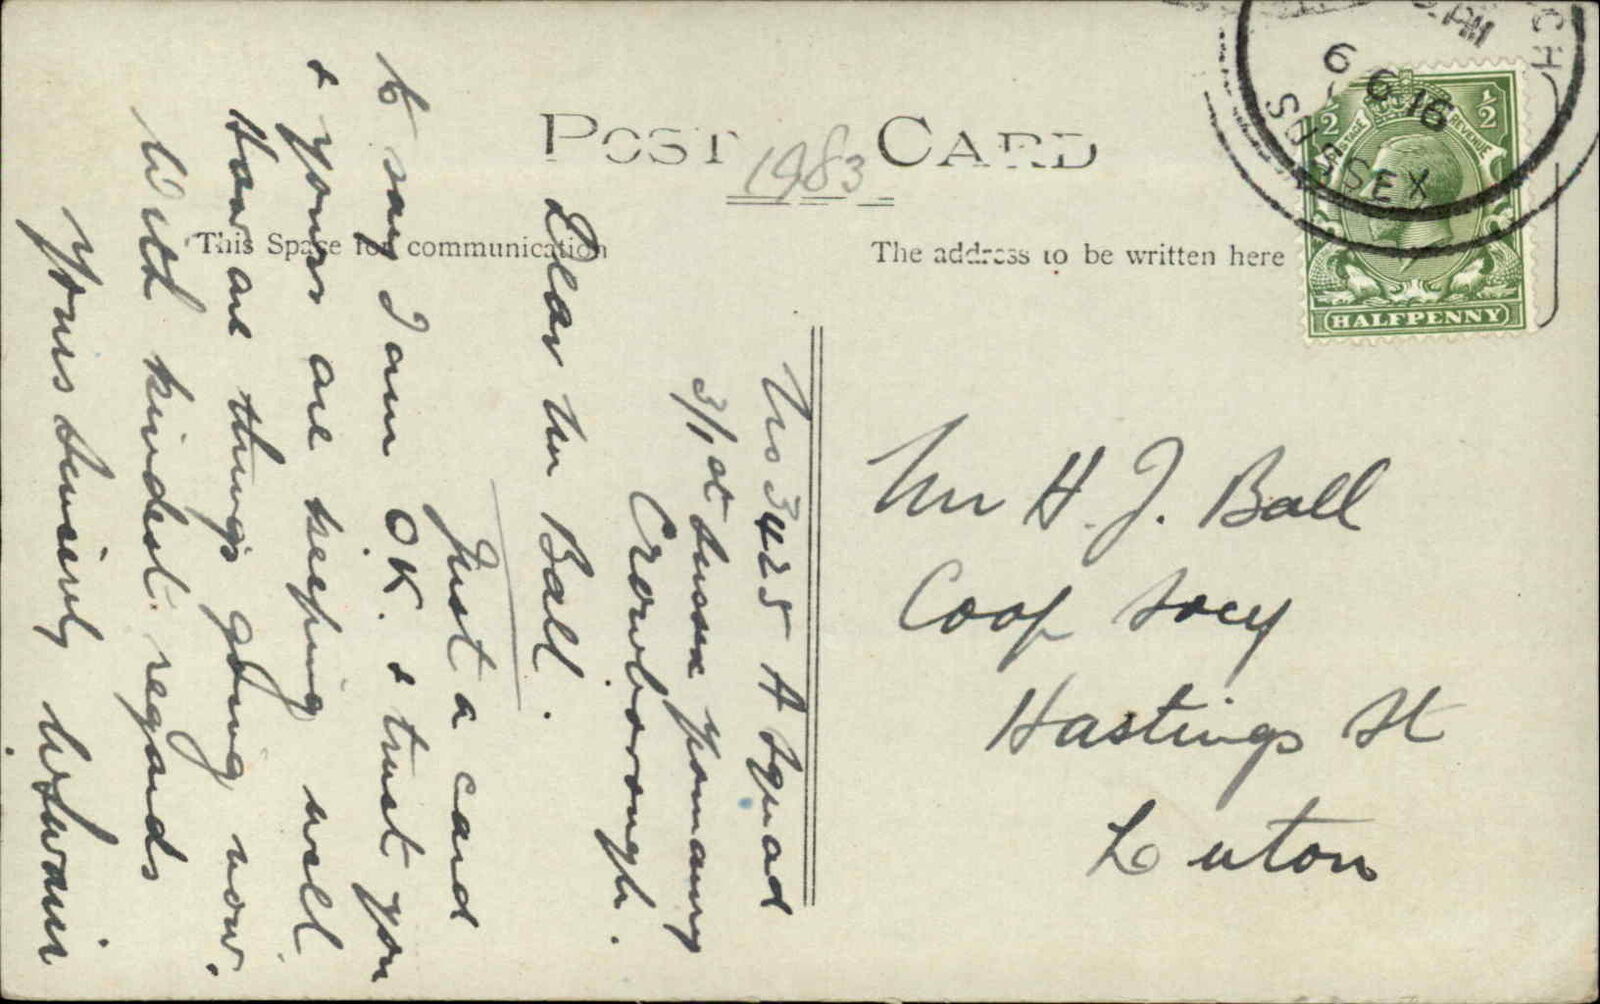 POST CARD
1983
This Space for communication
The address to be written here
CH
PM
6 6 16
SUSSEX
1/2 1/2
POSTAGE REVENUE
HALFPENNY
No 3425 A Squad
3/1st Sussex Yeomanry
Crowborough.
Dear Mr Ball.
Just a card
to say I am OK. & trust you
& yours are keeping well.
How are things going now.
With kindest regards
Yours sincerely
Mr H. J. Ball
Coop Socy
Hastings St
Luton